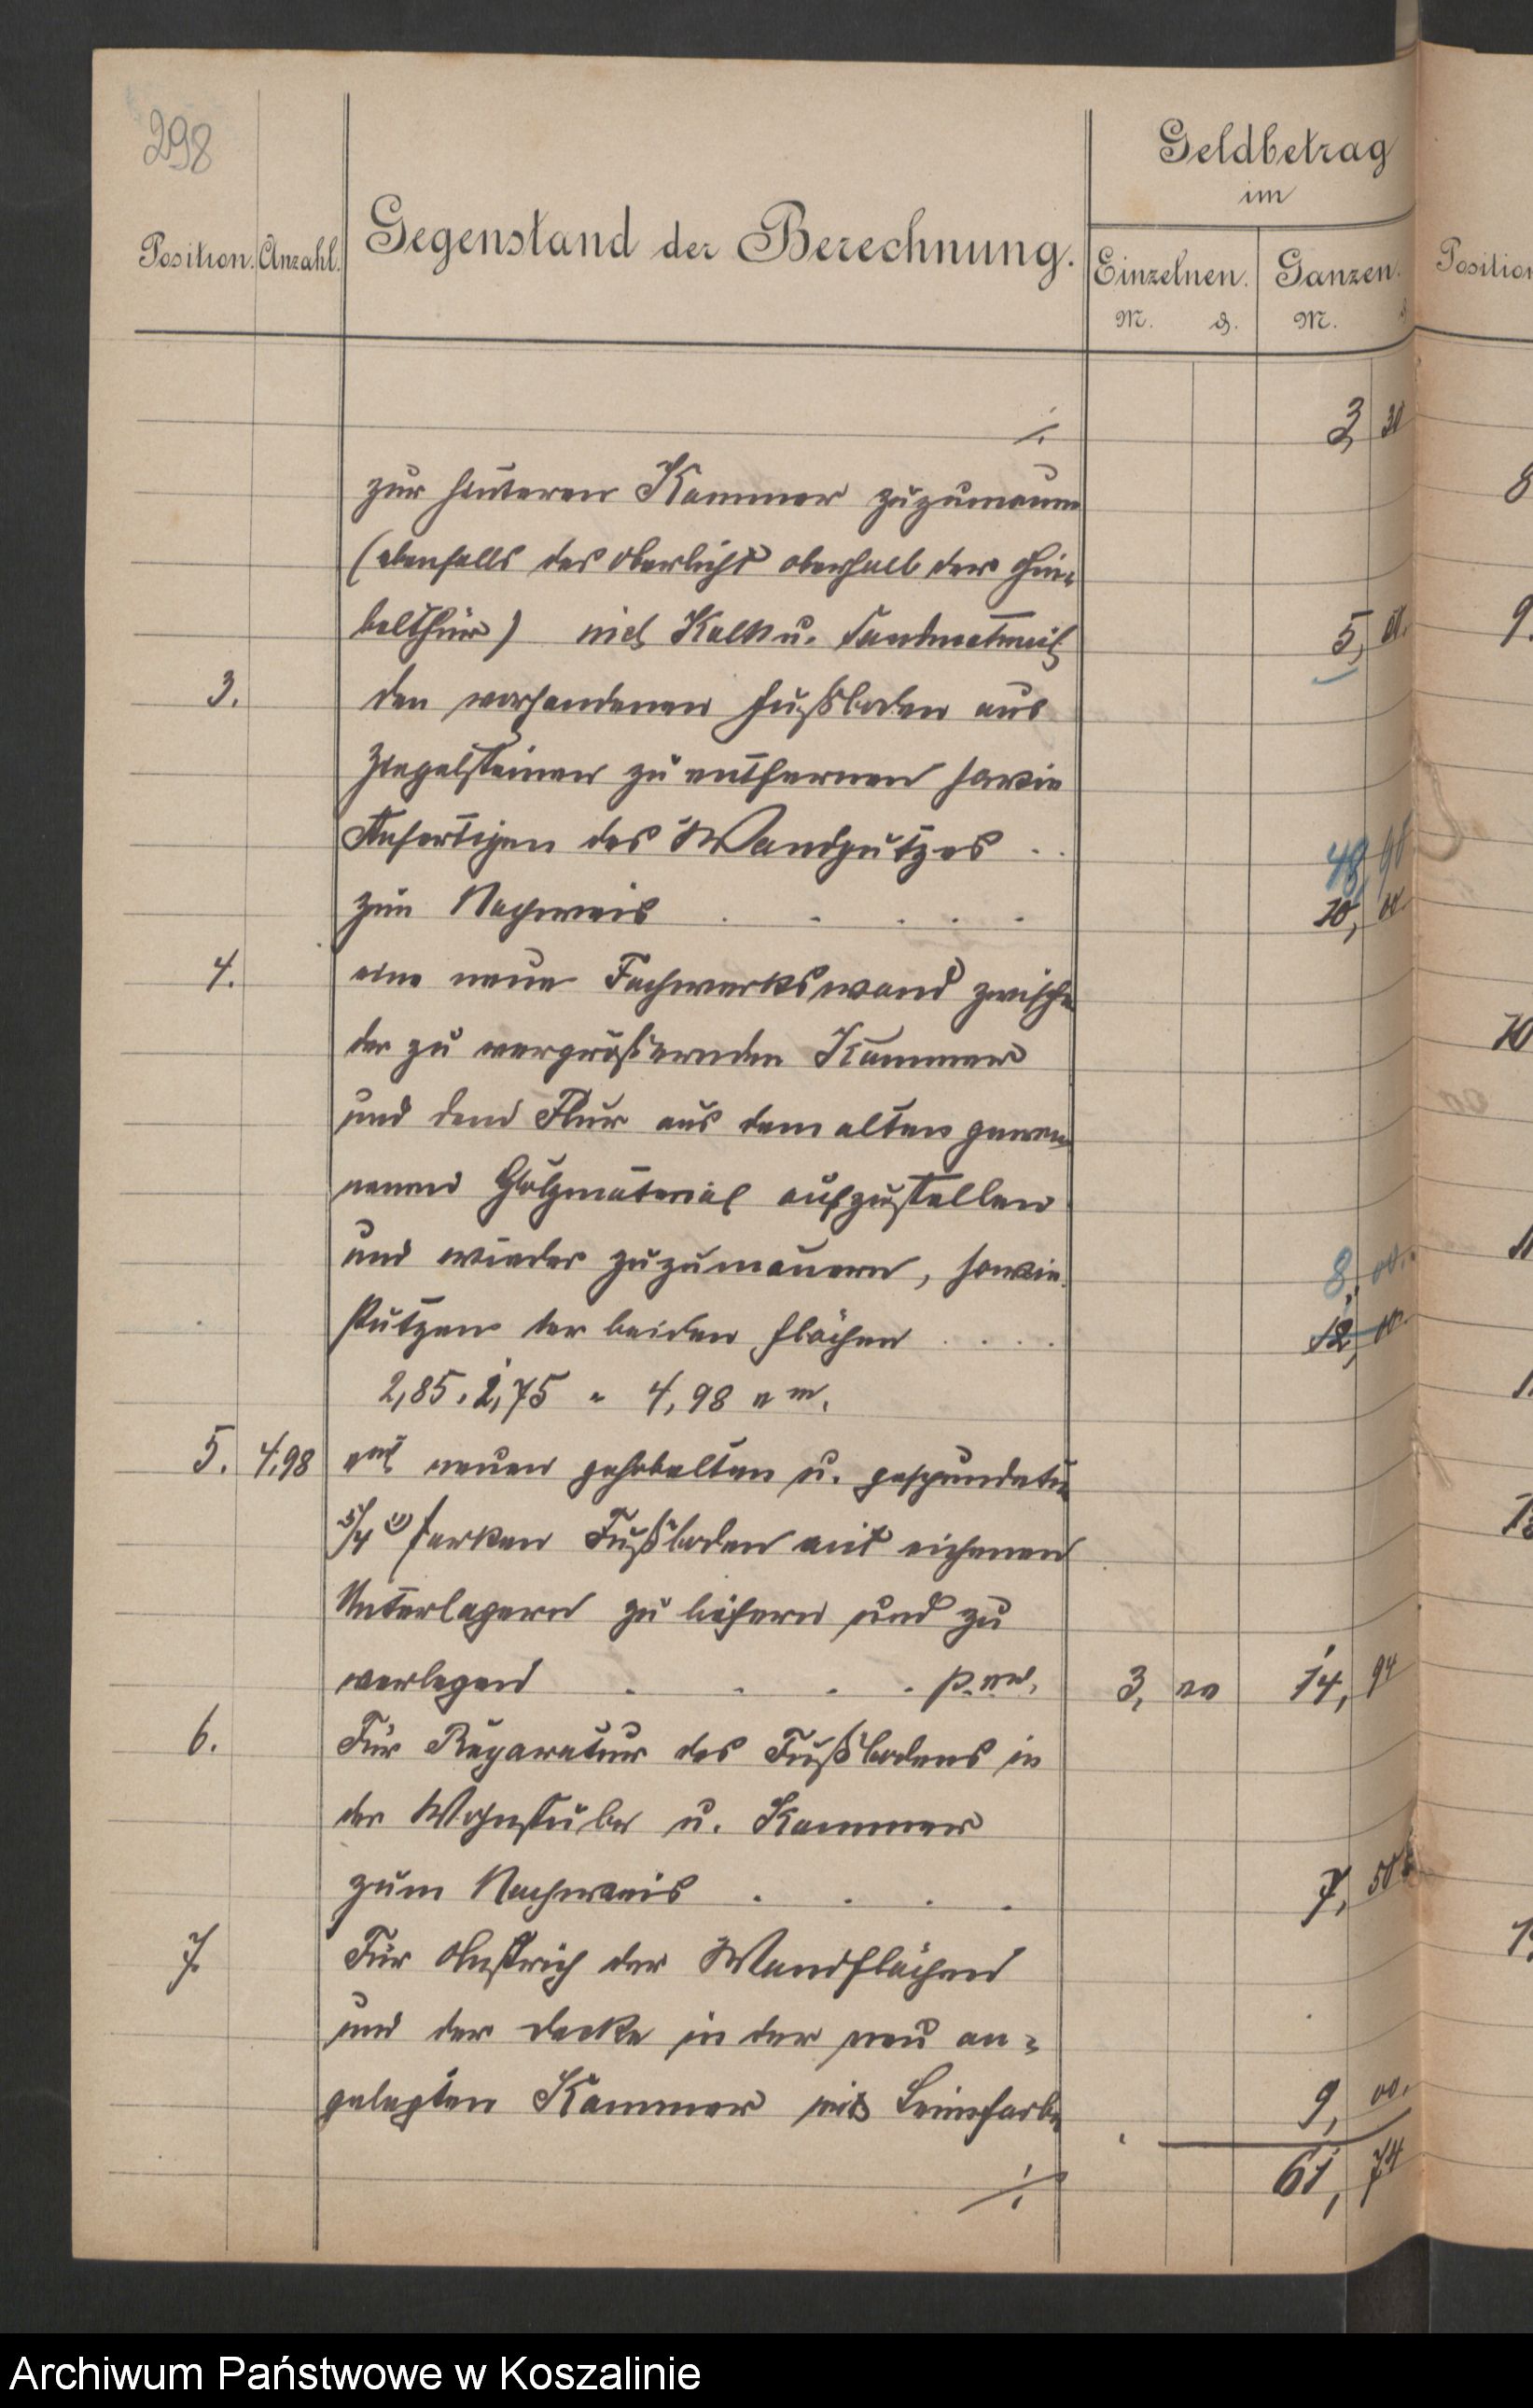 298
Geldbetrag
im
Position. Anzahl. Gegenstand der Berechnung. Einzelnen. Ganzen. Position
M. ₰. M. ₰
./. 3, 30
zur hinteren Kammer zuzumauern 8
(ebenfalls das Oberlicht oberhalb der Gie-
belthür) incl. Kalk u. Sandmaterial 5, 00. 9.
3. den vorhandenen Fußboden aus
Ziegelsteinen zu entfernen sowie
Anfertigen des Wandputzes . . 48, 90
zum Nachweis . . . . . 10, 00.
4. eine neue Fachwerkswand zwischen
der zu vergrößernden Kammer 10
und dem Flur aus dem alten gewon-
nenen Holzmaterial aufzustellen
und wieder zuzumauern, sowie 8, 00. 11
Putzen der beiden Flächen . . . . 12, 00.
2,85 . 1,75 = 4,98 □m.
5. 4,98 □m neuen gehobelten u. gespundeten
5/4" starken Fußboden mit eichenen
Unterlagern zu liefern und zu
verlegen . . . . p. □m. 3, 00 14, 94
6. Für Reparatur des Fußbodens in
der Wohnstube u. Kammer
zum Nachweis . . . . 7, 50
7. Für Anstrich der Wandflächen
und der Decke in der neu an-
gelegten Kammer mit Leimfarbe 9, 00.
./. 61, 74
Archiwum Państwowe w Koszalinie